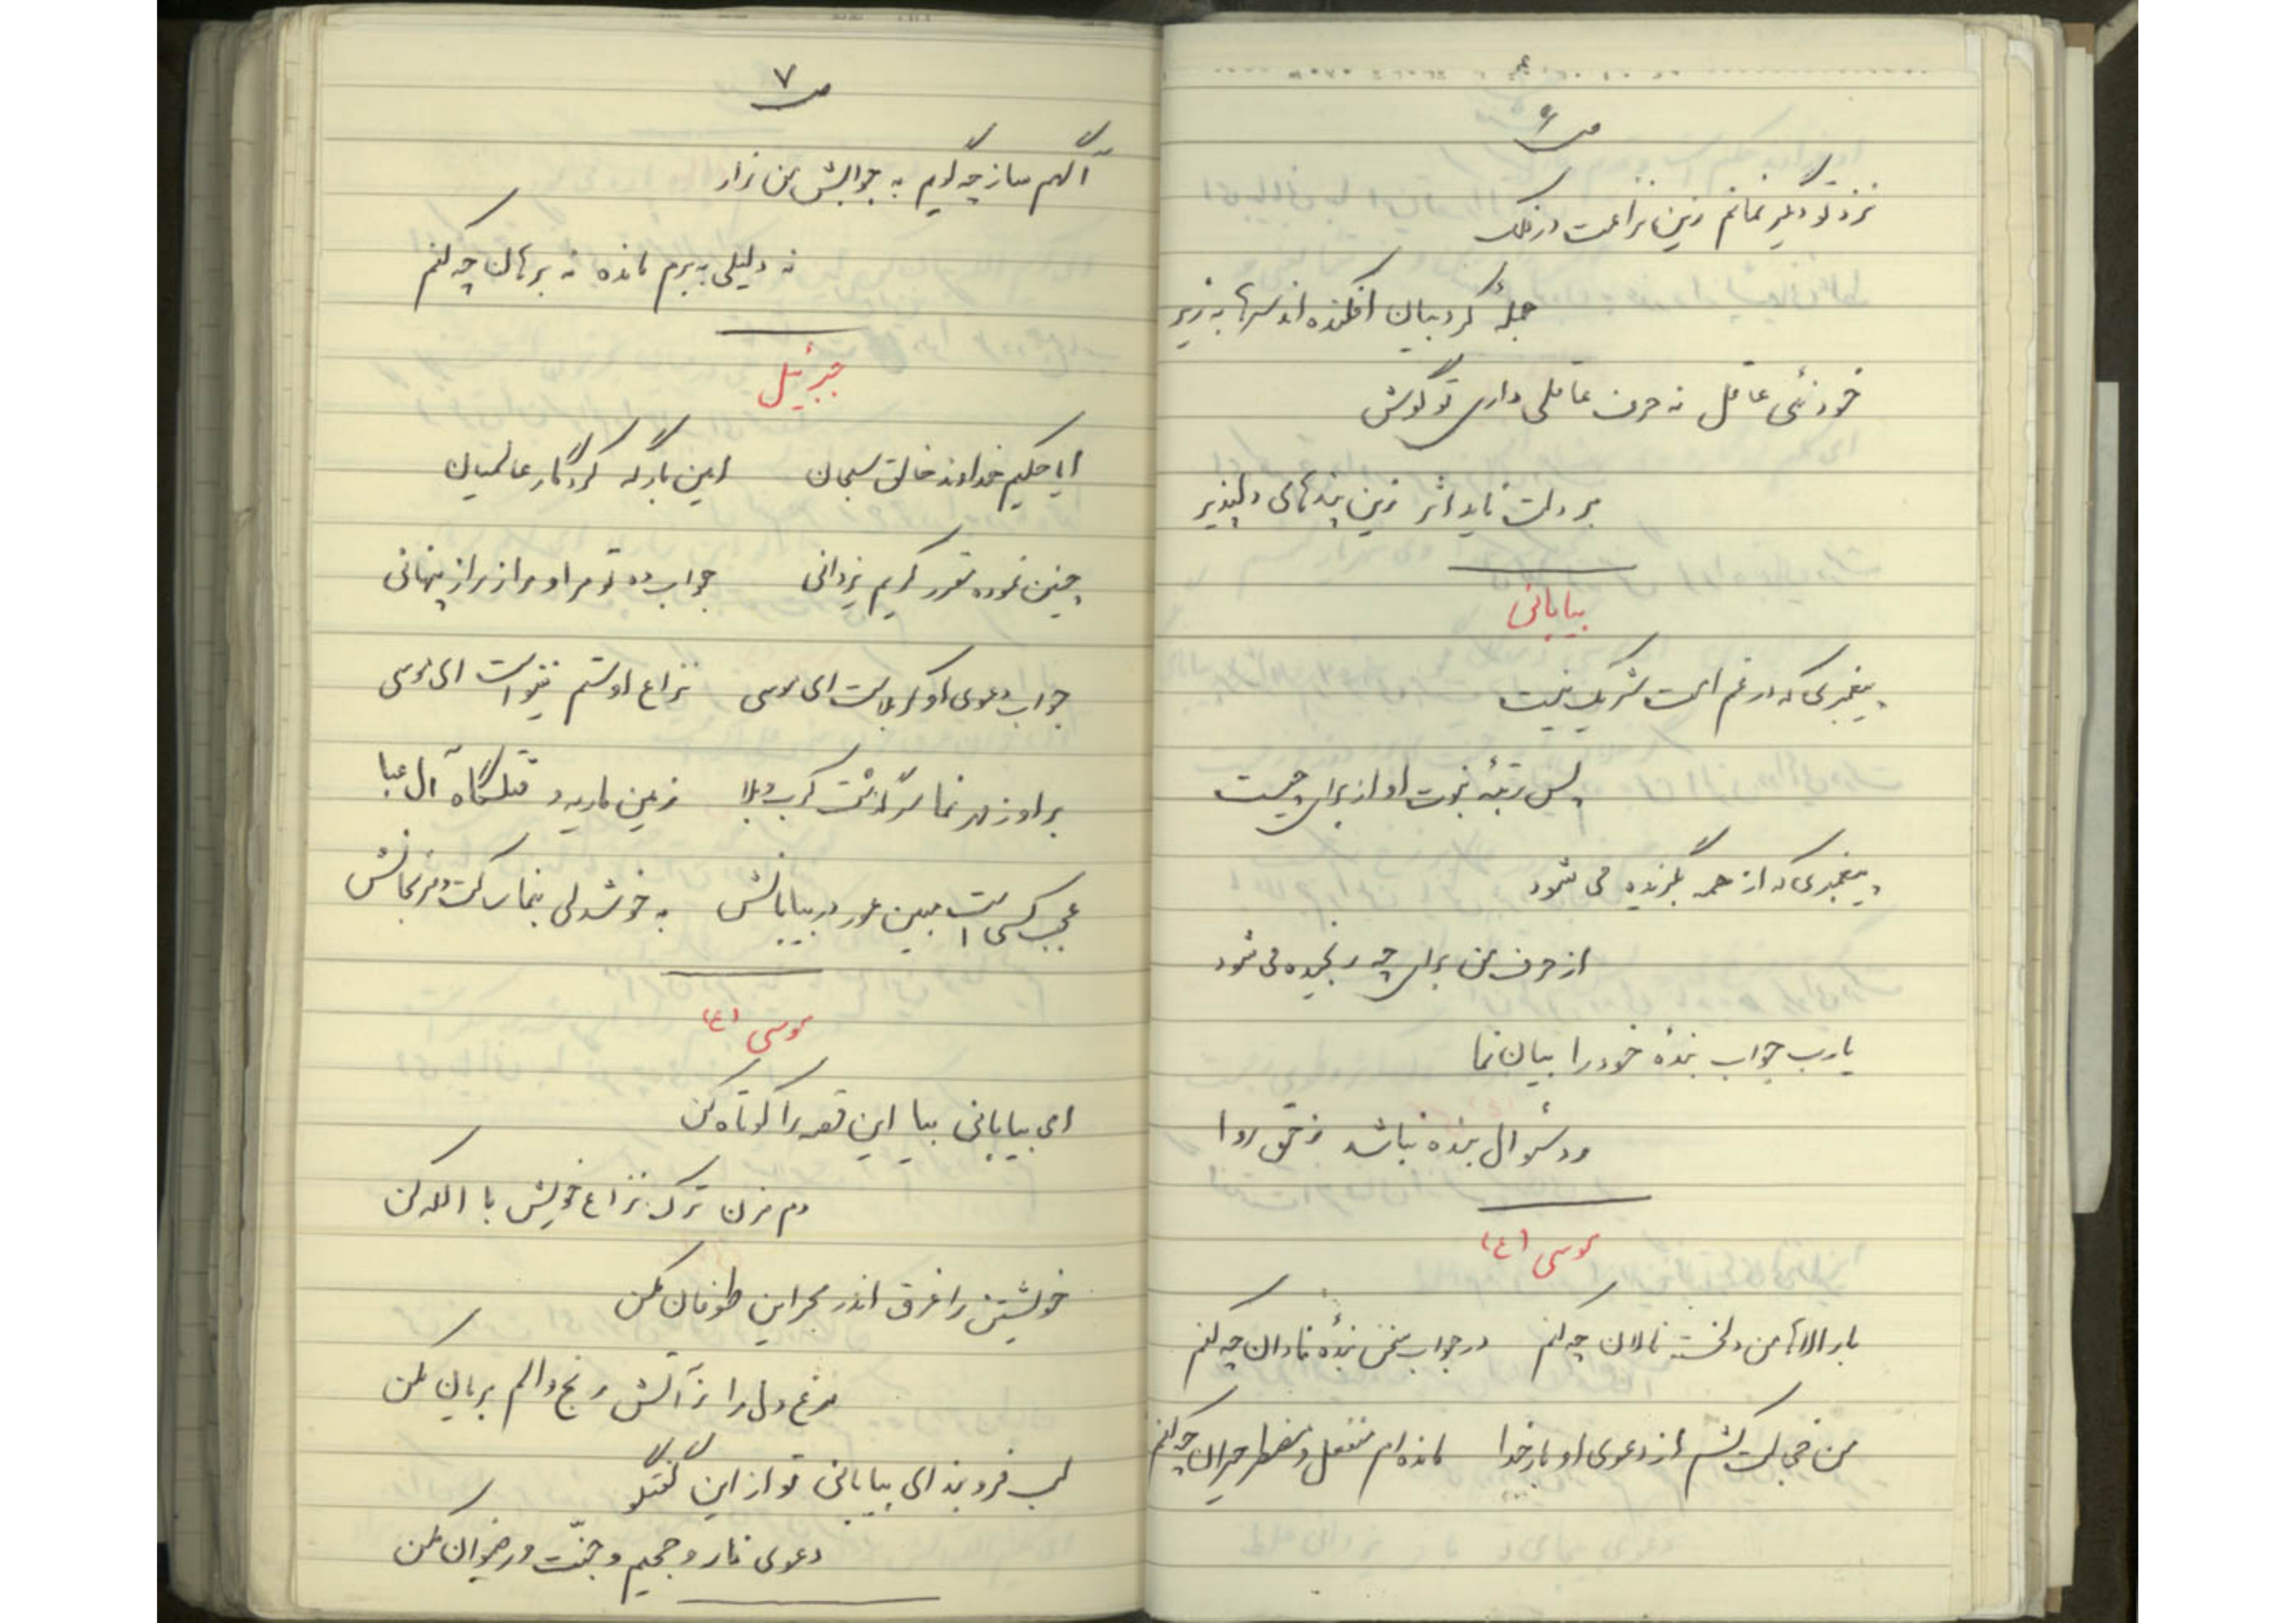 ص ۶
نزد تو دیگر نمانم زین نزاعت در فلک
جملهٔ کروبیان افکنده اند سرها به زیر
خود نئی عاقل نه حرف عاقلی داری تو گوش
بر دلت ناید اثر زین پندهای دلپذیر
بیابانی
پیغمبری که در غم امت شریک نیست
پس رتبهٔ نبوت او از برای چیست
پیغمبری که از همه بگزیده می شود
از حرف من برای چه رنجیده می شود
یارب جواب بندهٔ خود را بیان نما
رد سئوال بنده نباشد ز حق روا
موسی (ع)
بار الاها من دلخسته نالان چه کنم در جواب سخن بندهٔ نادان چه کنم
من خجالت کشم از دعوی او بارخدا مانده ام منفعل و مضطر حیران چه کنم
ص ۷
آگهم ساز چه گویم به جوابش من زار
نه دلیلی به برم مانده نه برهان چه کنم
جبرئیل
ایا حکیم خداوند خالق سبحان امین بارگه کردگار عالمیان
چنین نموده مقرر کریم یزدانی جواب ده تو مر او را ز راز پنهانی
جواب دعوی او کربلاست ای موسی نزاع او ستم نینواست ای موسی
بر او ز مهر نما سرگذشت کرب و بلا زمین ماریه و قتلگاه آل عبا
عجب کسی است مبین عور در بیابانش به خوشدلی بنما ساکت و مرنجانش
موسی (ع)
ای بیابانی بیا این قصه را کوتاه کن
دم مزن ترک نزاع خویش با الله کن
خویشتن را غرق اندر بحر این طوفان مکن
مرغ دل را ز آتش رنج و الم بریان مکن
لب فرو بند ای بیابانی تو از این گفتگو
دعوی نار و جحیم و جنّت و رضوان مکن